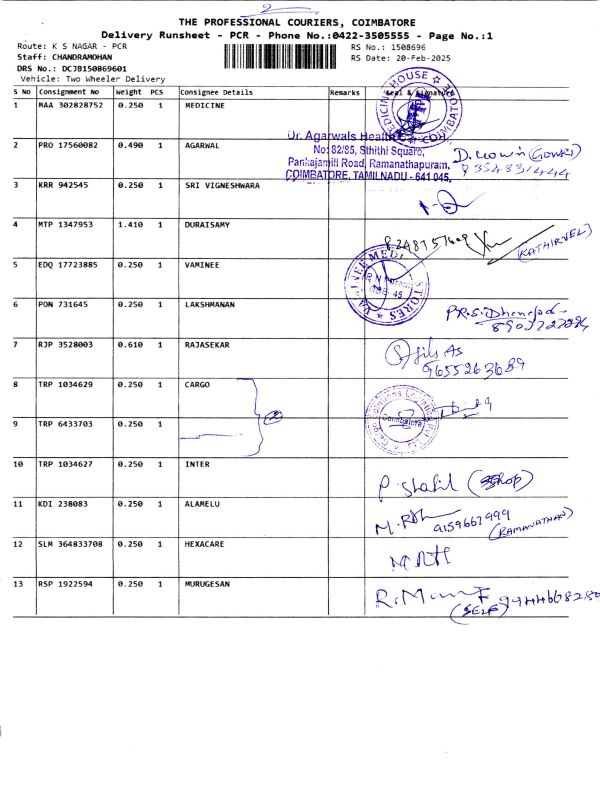 2
THE PROFESSIONAL COURIERS, COIMBATORE
Delivery Runsheet - PCR - Phone No.:0422-3505555 - Page No.:1
Route: K S NAGAR - PCR RS No.: 1508696
Staff: CHANDRAMOHAN RS Date: 20-Feb-2025
DRS No.: DCJB150869601
Vehicle: Two Wheeler Delivery
S No Consignment No Weight PCS Consignee Details Remarks Seal & Signature
1 MAA 302828752 0.250 1 MEDICINE
MEDICINE HOUSE COIMBATORE
2 PRO 17560082 0.490 1 AGARWAL
Dr. Agarwals Health
No: 82/85, Sthithi Square,
Pankajamill Road, Ramanathapuram,
COIMBATORE, TAMILNADU - 641 045.
(GOWRI)
3 KRR 942545 0.250 1 SRI VIGNESHWARA
4 MTP 1347953 1.410 1 DURAISAMY
(KATHIRVEL)
5 EDQ 17723885 0.250 1 VAMINEE
VAMINEE MEDI STORES
6 PON 731645 0.250 1 LAKSHMANAN
7 RJP 3528003 0.610 1 RAJASEKAR
9655263689
8 TRP 1034629 0.250 1 CARGO
Coimbatore
9 TRP 6433703 0.250 1
10 TRP 1034627 0.250 1 INTER
(Shop)
11 KDI 238083 0.250 1 ALAMELU
9159667999
(RAMANATHAN)
12 SLM 364833708 0.250 1 HEXACARE
13 RSP 1922594 0.250 1 MURUGESAN
(SELF)